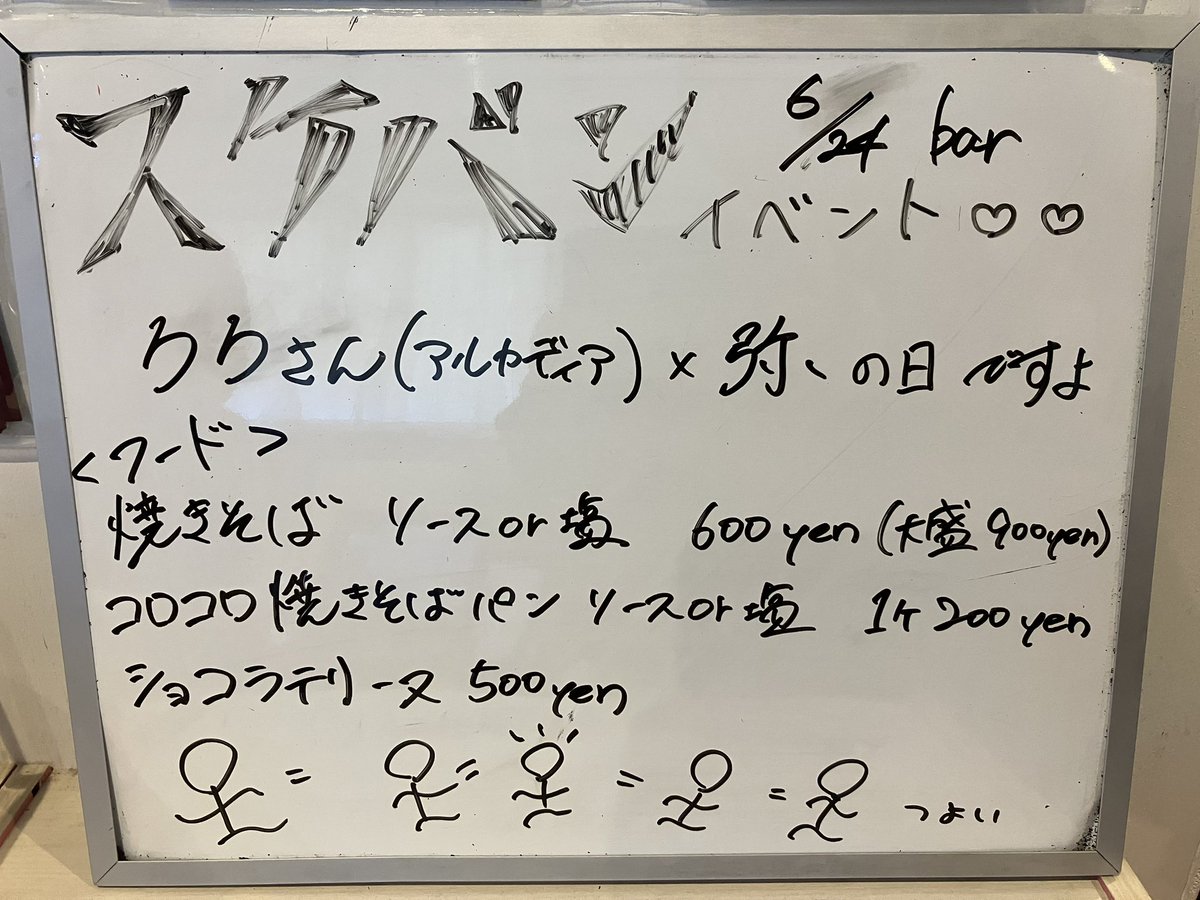 スケバン 6/24 bar
イベント♡♡
クウさん(アルカディア)×弥いの日ですよ
<フード>
焼きそば ソースor塩 600yen(大盛900yen)
コロコロ焼きそばパン ソースor塩 1ケ200yen
ショコラテリーヌ 500yen
= = = = つよい